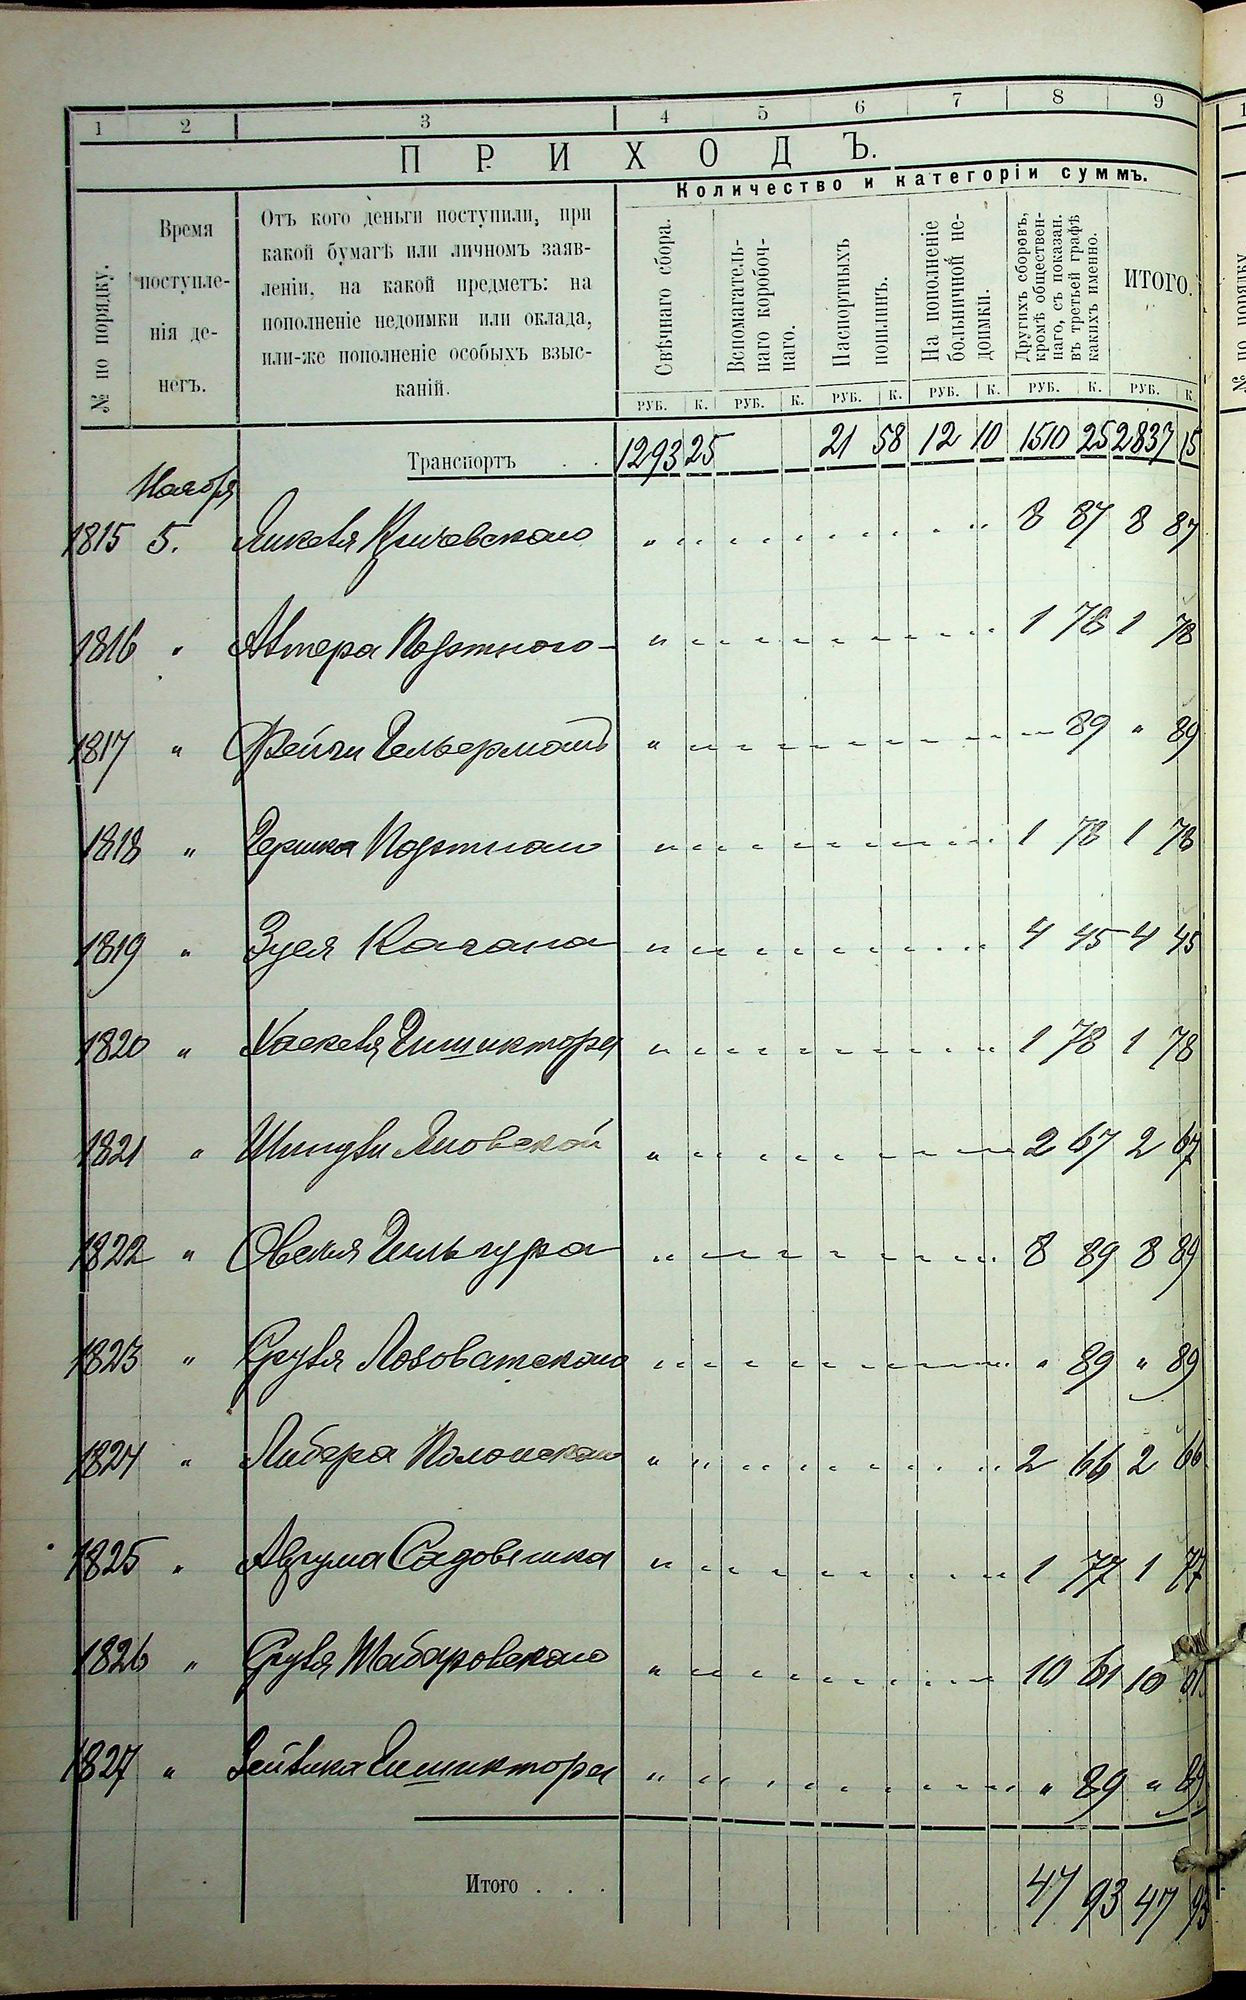 1 2 3 4 5 6 7 8 9
ПРИХОДЪ.
Количество и категоріи суммъ.
№ по порядку.
Время
поступле-
нія де-
негъ.
Отъ кого деньги поступили, при
какой бумагѣ или личномъ заяв-
леніи, на какой предметъ: на
пополненіе недоимки или оклада,
или-же пополненіе особыхъ взыс-
каній.
Свѣчнаго сбора.
Вспомагатель-
наго коробоч-
наго.
Паспортныхъ
пошлинъ.
На пополненіе
больничной не-
доимки.
Другихъ сборовъ,
кромѣ обществен-
наго, съ показан.
въ третьей графѣ
какихъ именно.
ИТОГО.
РУБ. К. РУБ. К. РУБ. К. РУБ. К. РУБ. К. РУБ. К.
Транспортъ . . 1293 25 21 58 12 10 1510 25 2837 15
Ноября
1815 5. Кричевскаго " 8 87 8 87
1816 " Портного " 1 78 1 78
1817 " Фейги " " 89 " 89
1818 " Гершка Портного " 1 78 1 78
1819 " Зуся Кагана " 4 45 4 45
1820 " Хаскеля " 1 78 1 78
1821 " " 2 67 2 67
1822 " Овсея " 8 89 8 89
1823 " Сруля Лозоватскаго " " 89 " 89
1824 " Либера Полонскаго " 2 66 2 66
1825 " " 1 77 1 77
1826 " Сруля Шабаровскаго " 10 61 10 61
1827 " " " 89 " 89
Итого . . . 47 93 47 93